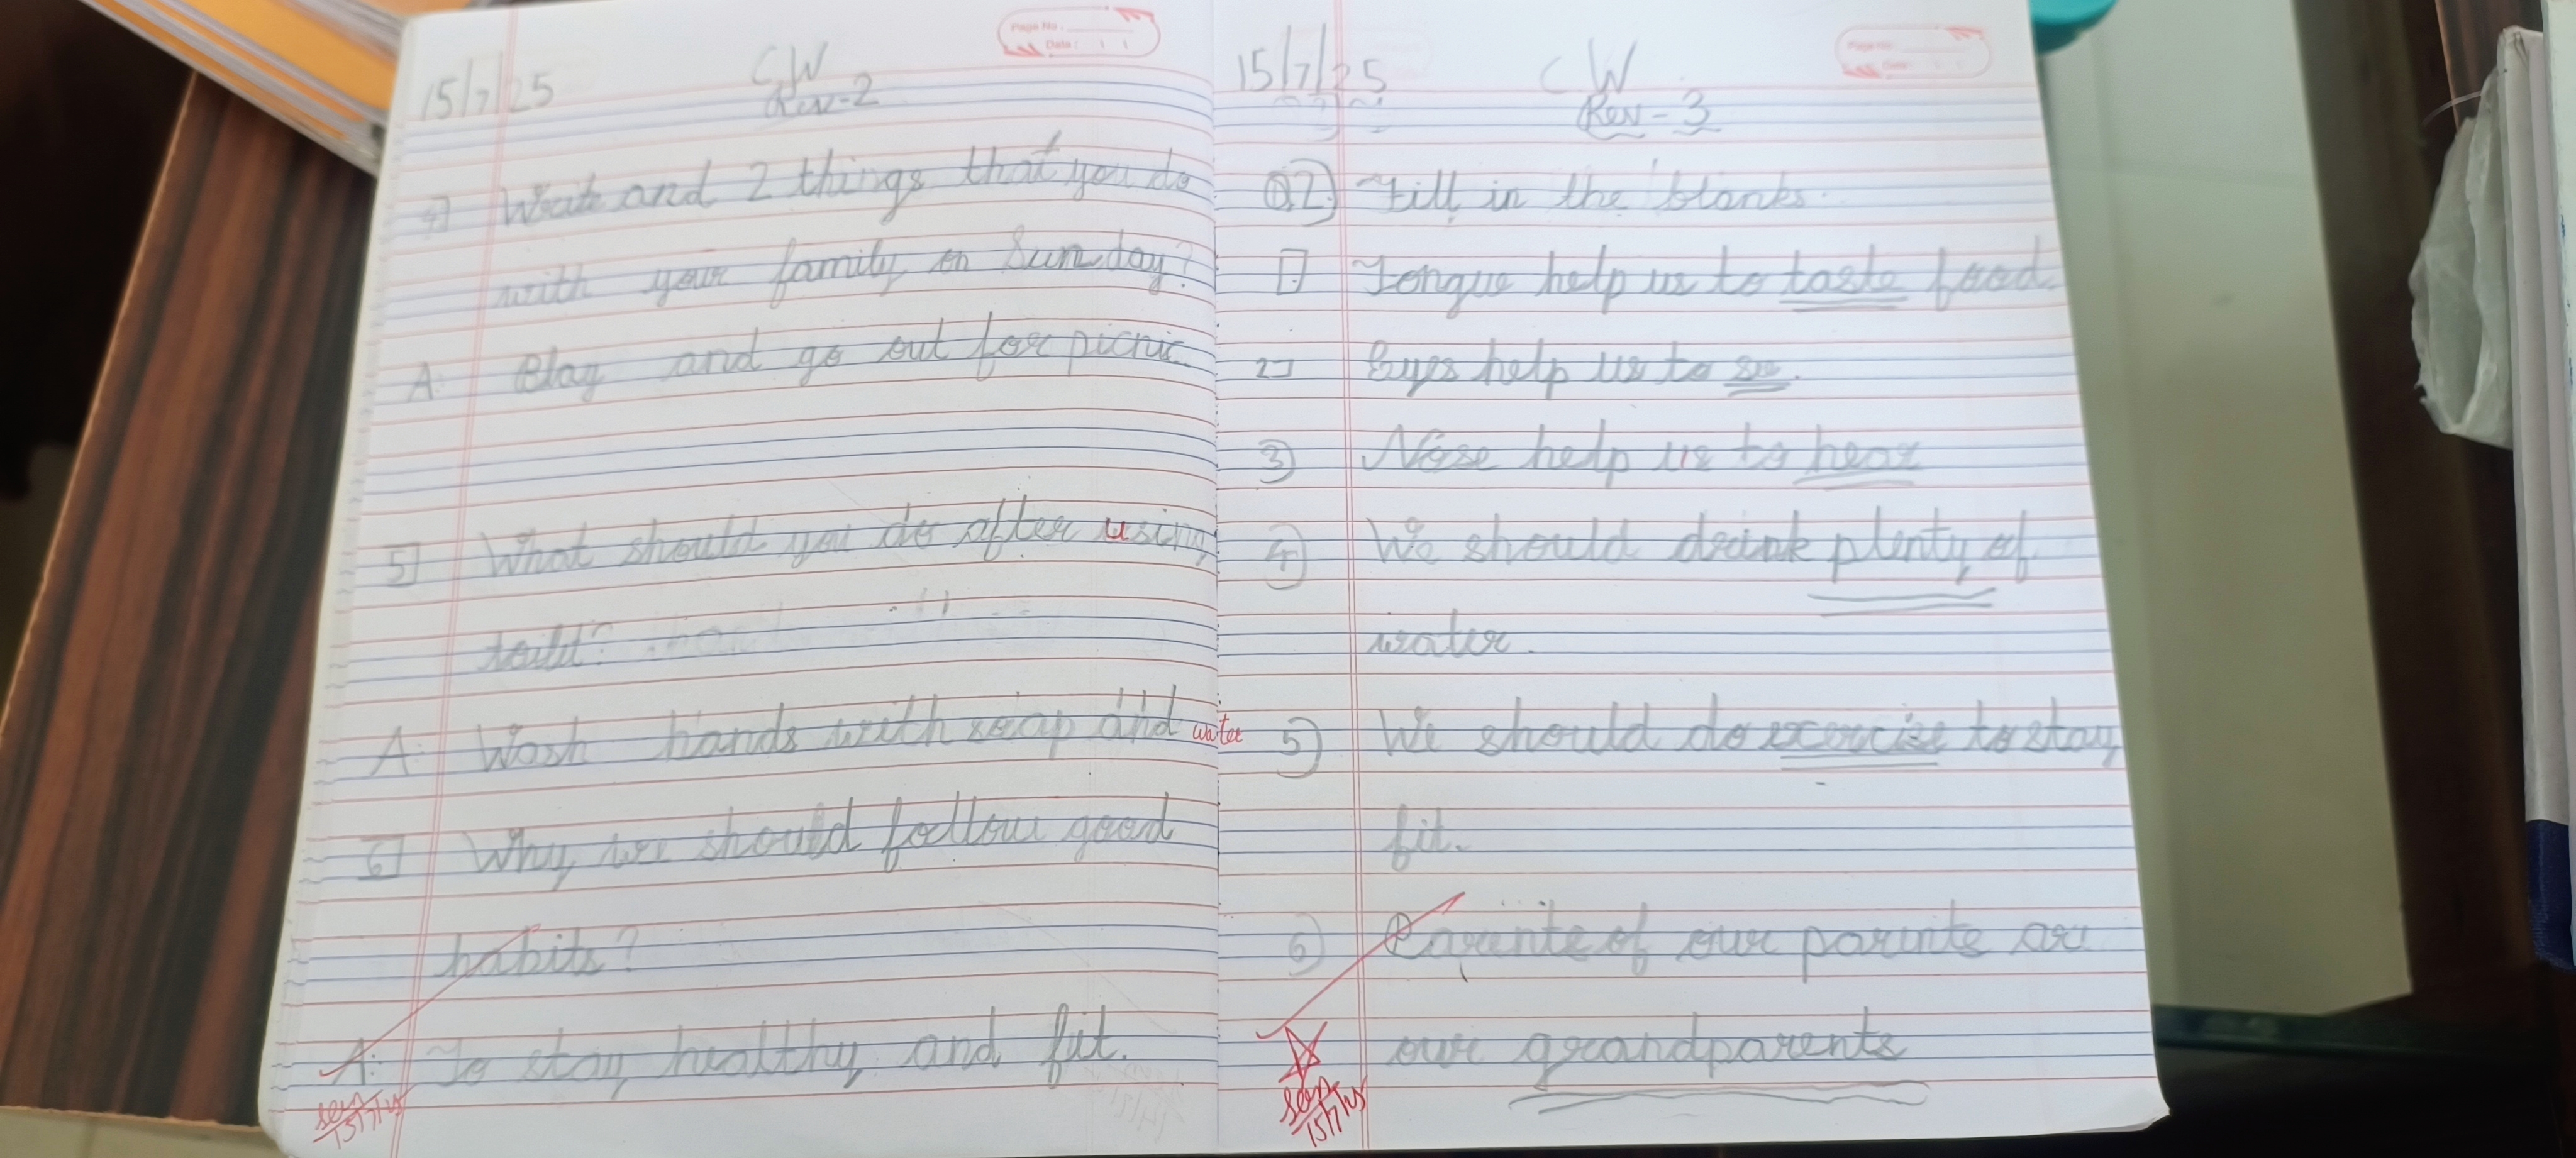 Page No.
Date:
15/7/25
CW
Rev-2
4] Write and 2 things that you do
with your family on Sunday?
A: Play and go out for picnic
5] What should you do after using
toilit?
A: Wash hands with soap and water
6] Why we should follow good
habits?
A: To stay healthy and fit.
seen
15/7/25
Page No.
Date:
15/7/25
CW
Rev-3
Q2) Fill in the blanks.
1] Tongue help us to taste food
2] Eyes help us to see.
3) Nose help us to hear
4) We should drink plenty of
water.
5) We should do exercise to stay
fit.
6) Parents of our parents are
our grandparents
seen
15/7/25